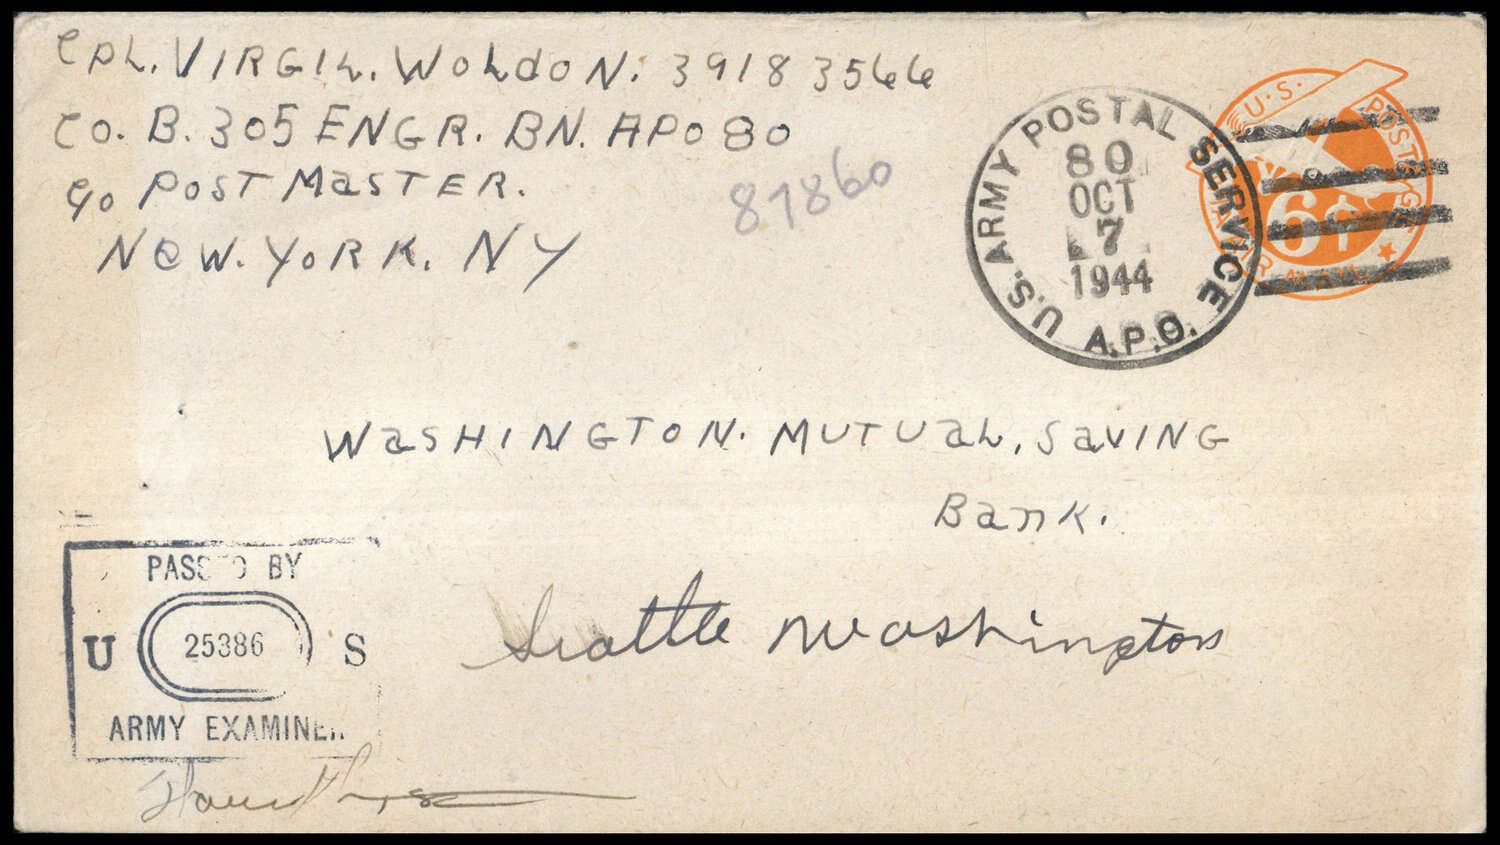 CPL. VIRGIL. WOLDON. 39183566
CO. B. 305 ENGR. BN. APO 80
c/o POST MASTER.
NEW. YORK. NY
87860
U.S. ARMY POSTAL SERVICE
80
OCT
7
1944
A.P.O.
U.S. POSTAGE
6¢
AIR MAIL
WASHINGTON. MUTUAL, SAVING
Bank.
Seattle Washington
PASSED BY
U 25386 S
ARMY EXAMINER